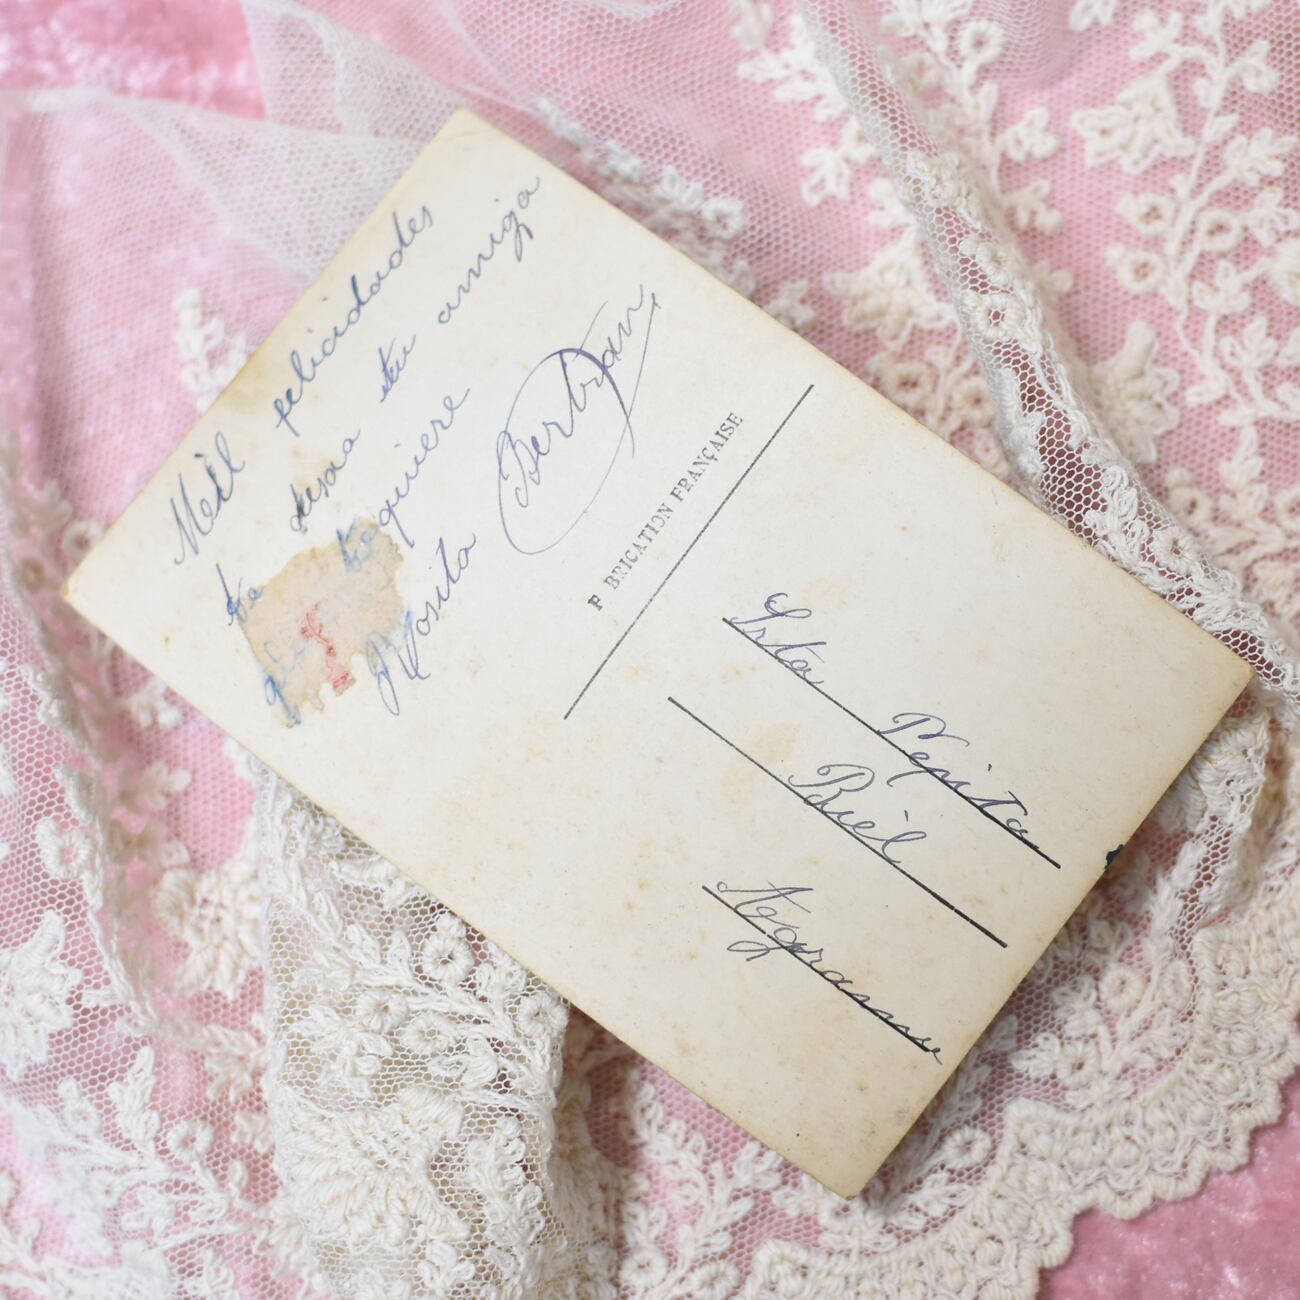 Mil felicidades
desea tu amiga
te quiere
Rosita Bertran
F BRICATION FRANÇAISE
Srta Pepita
Briel